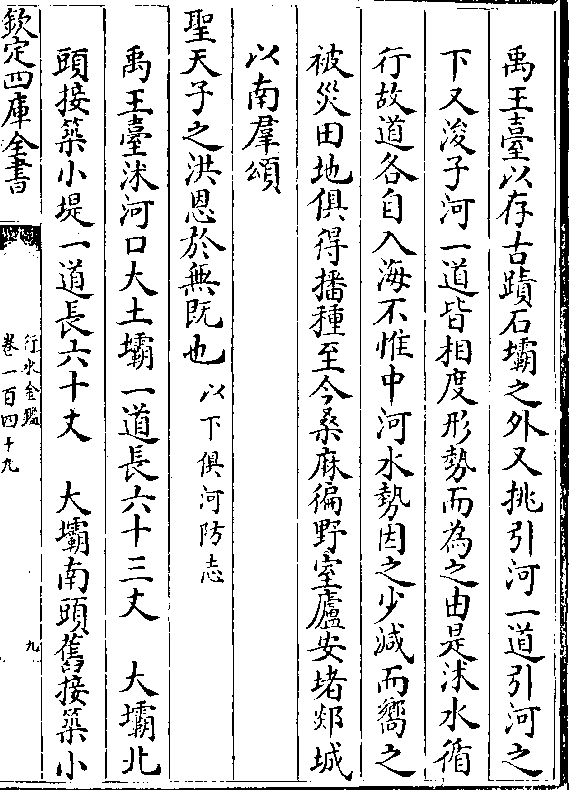 禹王臺以存古蹟石壩之外又挑引河一道引河之
下又浚子河一道皆相度形勢而為之由是沭水循
行故道各自入海不惟中河水勢因之少減而嚮之
被災田地俱得播種至今桑麻徧野室廬安堵郯城
以南羣頌
聖天子之洪恩於無既也以下俱河防志
禹王臺沭河口大土壩一道長六十三丈　大壩北
頭接築小堤一道長六十丈　大壩南頭舊接築小
欽定四庫全書
行水金鑑
卷一百四十九
九